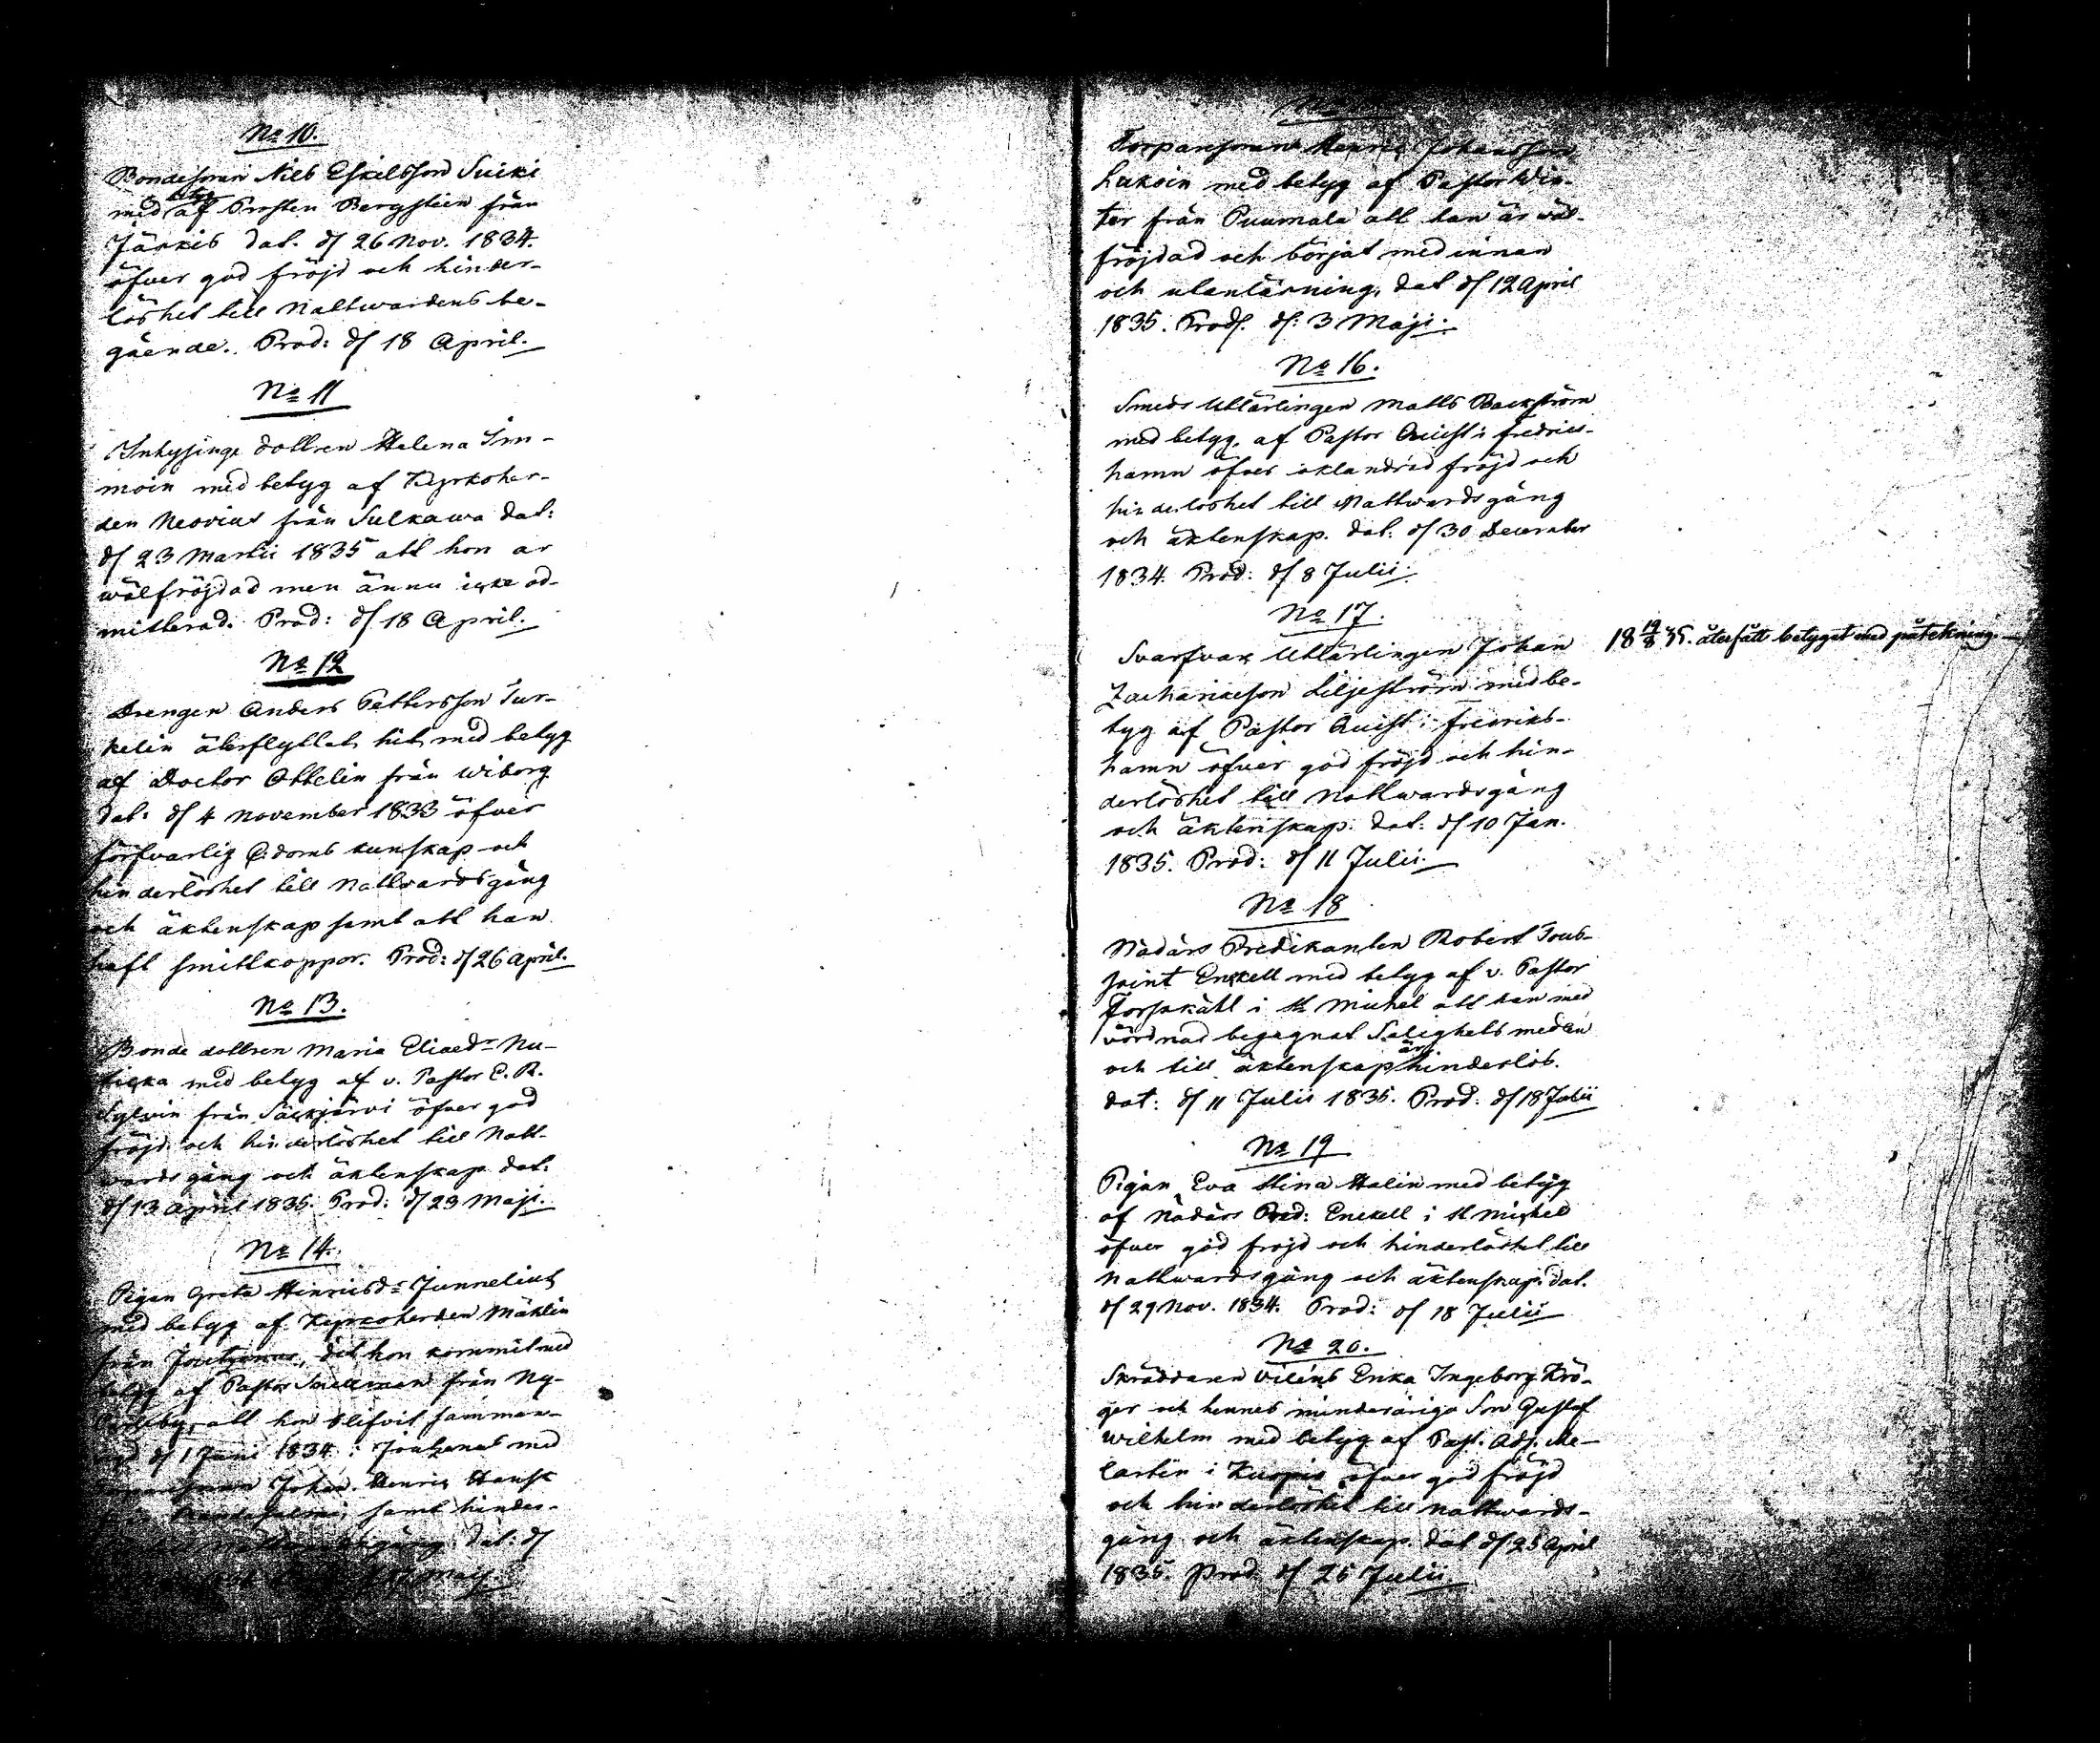 No 10.
Bondesonen Nils Eskelsson Suiki
med betyg af Prosten Bergstein från
Jäskis dat. d/ 26 Nov. 1834.
öfver god fröjd och hinder-
löshet till Nattwardens be-
gående. Prod: d/ 18 April.
No 11
Inhysinge dottren Helena Im-
moin med betyg af Kyrkoher-
den Neovius från Sulkawa dat:
d/ 23 Martii 1835 att hon är
wälfröjdad men ännu icke ad-
mitterad. Prod: d/ 18 April.
No 12
Drengen Anders Pettersson Tur-
kelin återflyttat hit med betyg
af Doctor Ottelin från Wiborg
dat: d/ 4 November 1833 öfver
försvarlig C:doms kunskap och
hinderlöshet till Nattvardsgång
och äktenskap samt att han
haft smittkoppor. Prod: d/ 26 April.
No 13.
Bonde dottren Maria Eliaedr Nu-
med betyg af v. Pastor C. R.
Sylvin från Säkjärvi öfver god
fröjd och hinderlöshet till Natt-
wards gång och äktenskap dat:
d/ 13 April 1835. Prod: d/ 23 Maji.
No 14.
Pigan Greta Henricsdr Junnelius
med betyg af Kyrkoherden Mäklin
från Joutzenus, dit hon kommit med
betyg af Pastor Snellman från Ny-
Carleby, att hon blifvit samman-
vigd d/ 1 Juni 1834 i Joutzenus med
Johan Henric Hansk
samt hinder-
gång dat: d/
Maji.
No
Torparsonen Henric Johansson
Luksin med betyg af Pastor Win-
ter från Puumala att han är wäl-
fröjdad och börjat med innan
och utanläsning, dat d/ 12 April
1835. Prod. d: 3 Maji.
No 16.
Smeds Utlärlingen Matts Backström
med betyg af Pastor Quist i Fredrics-
hamn öfver oklandrad fröjd och
hinderlöshet till Nattwardsgång
och äktenskap. dat: d/ 30 December
1834. Prod: d/ 8 Julii.
No 17.
Svarfvare Utlärlingen Johan
Zachariaeson Liljeström med be-
tyg af Pastor Quist i Fredriks-
hamn öfver god fröjd och hin-
derlöshet till Nattwardsgång
och äktenskap. dat: d/ 10 Jan.
1835. Prod: d/ 11 Julii.
18 19/8 35. återfått betyget med påtekning.
No 18
Nådårs Predikanten Robert Tous-
saint Enckell med betyg af v. Pastor
Forsskåhl i St Michel att han med
vördnad begagnat Salighets medlen
och till äktenskap är hinderlös.
dat: d/ 11 Julii 1835. Prod: d/ 18 Julii
No 19
Pigan Eva Stina Halin med betyg
af Nådårs Pred: Enckell i St Michel
öfver god fröjd och hinderlöshet till
Nattwardsgång och äktenskap dat.
d/ 29 Nov. 1834. Prod: d/ 18 Julii
No 20.
Skräddaren Viléns Enka Ingeborg Krö-
ger och hennes minderåriga Son Gustaf
Wilhelm med betyg af Past. Adj. Me-
lartin i Kuopio öfver god fröjd
och hinderlöshet till Nattwards-
gång och äktenskap. dat d/ 25 April
1835. Prod d/ 25 Julii